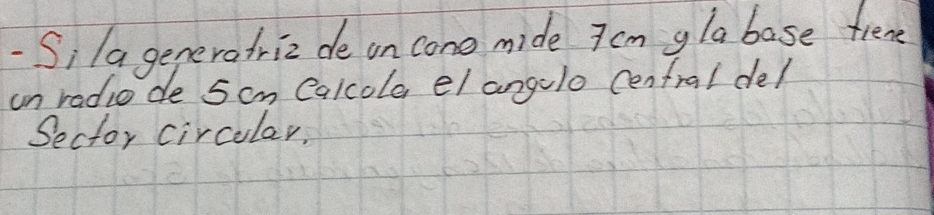 - Si la generatriz de un cono mide 7cm y la base tiene
un radio de 5cm Calcula el angulo Central del
Sector Circular.